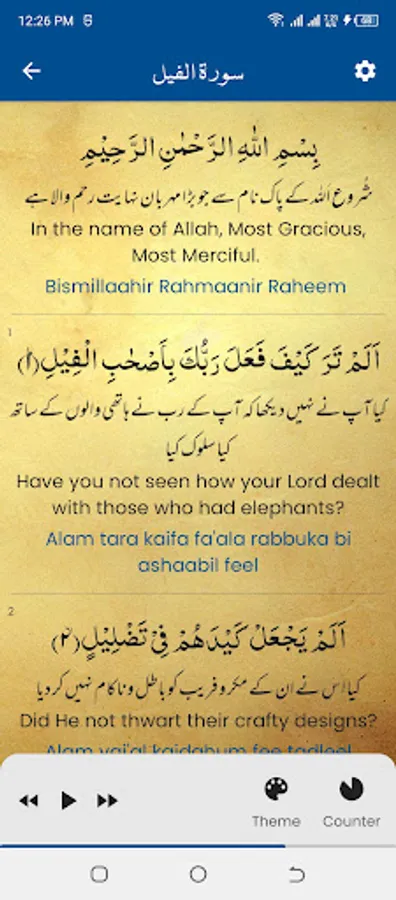 12:26 PM
سورة الفيل
بِسْمِ اللهِ الرَّحْمٰنِ الرَّحِيْمِ
شُروع اَللہ کے پاک نام سے جو بڑا مہربان نہایت رحم والا ہے
In the name of Allah, Most Gracious,
Most Merciful.
Bismillaahir Rahmaanir Raheem
1
اَلَمْ تَرَ كَيْفَ فَعَلَ رَبُّكَ بِاَصْحٰبِ الْفِيْلِ(۱)
کیا آپ نے نہیں دیکھا کہ آپ کے رب نے ہاتھی والوں کے ساتھ
کیا سلوک کیا
Have you not seen how your Lord dealt
with those who had elephants?
Alam tara kaifa fa'ala rabbuka bi
ashaabil feel
2
اَلَمْ يَجْعَلْ كَيْدَهُمْ فِيْ تَضْلِيْلٍ(۲)
کیا اس نے ان کے مکر و فریب کو باطل و ناکام نہیں کر دیا
Did He not thwart their crafty designs?
Alam yaj'al kaidahum fee tadleel
Theme
Counter